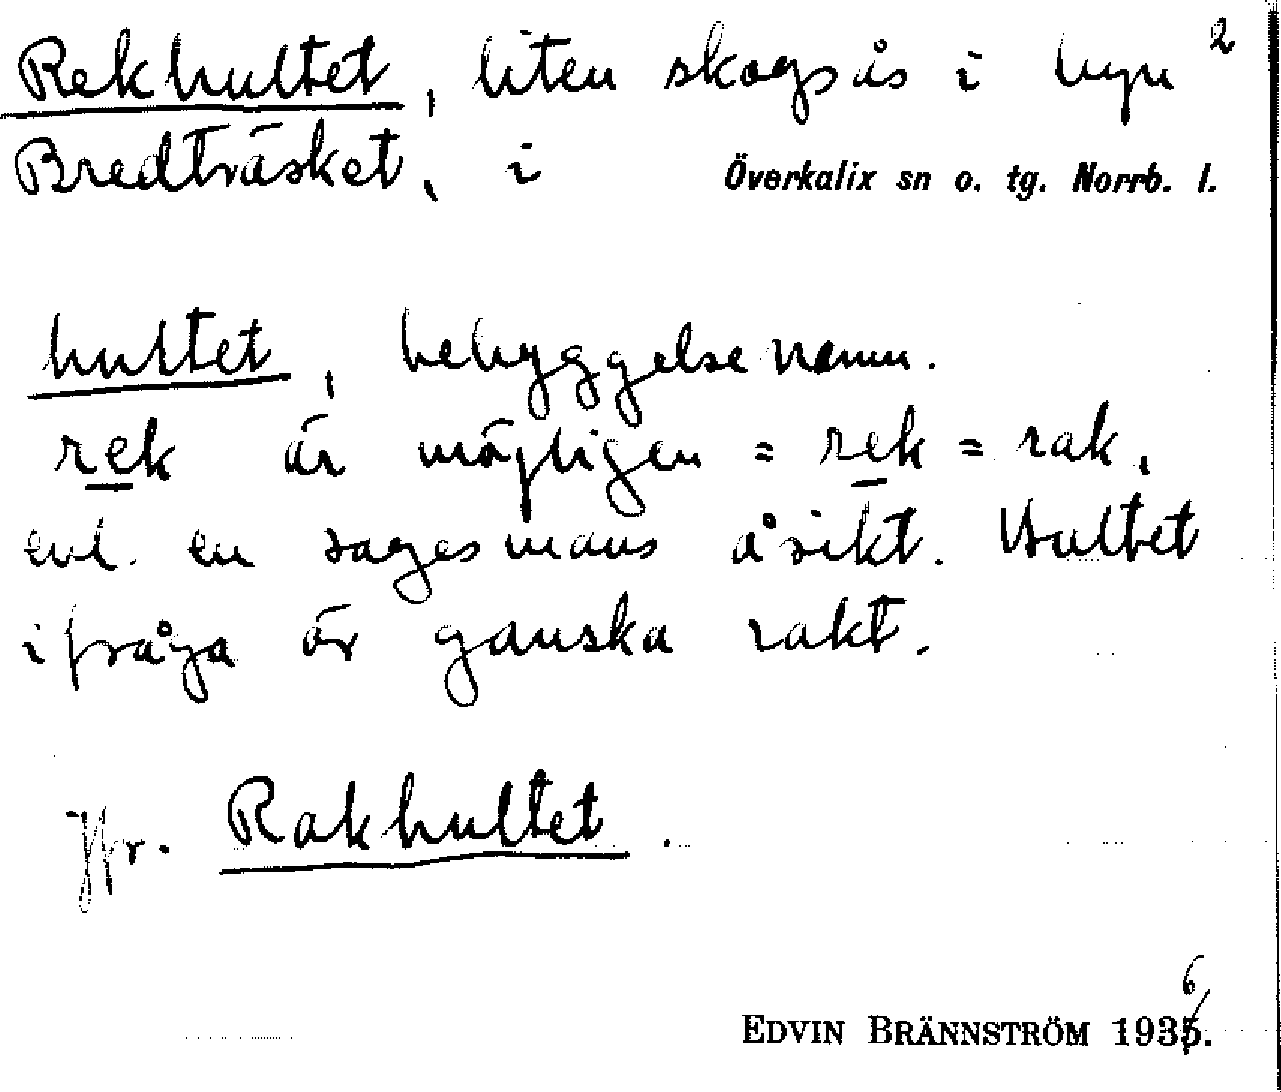 Rekhultet, liten skogsås i byn 2
Bredträsket, i Överkalix sn o. tg. Norrb. l.
hultet, bebyggelsenamn.
rek är möjligen = rek = rak,
enl. en sagesmans åsikt. Hultet
ifråga är ganska rakt.
Jfr. Rakhultet.
6
EDVIN BRÄNNSTRÖM 1935.